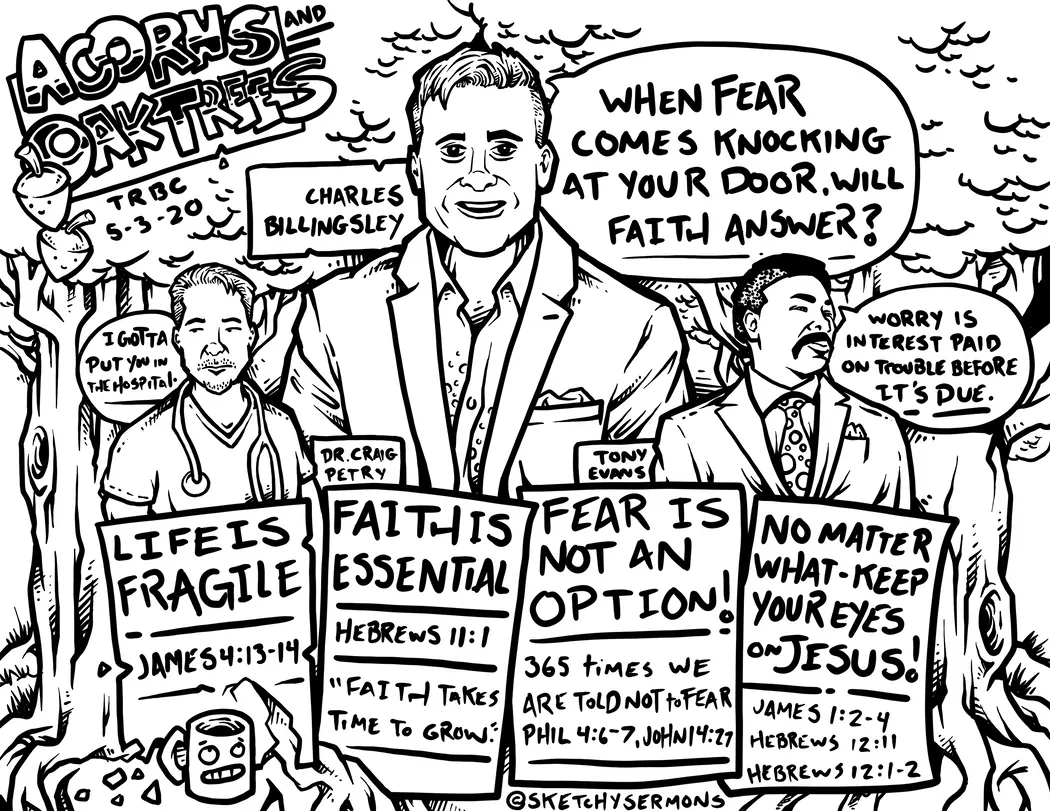 ACORNS AND
OAK TREES
TRBC
5-3-20
CHARLES
BILLINGSLEY
WHEN FEAR
COMES KNOCKING
AT YOUR DOOR, WILL
FAITH ANSWER?
I GOTTA
PUT YOU IN
THE HOSPITAL.
DR. CRAIG
PETRY
TONY
EVANS
WORRY IS
INTEREST PAID
ON TROUBLE BEFORE
IT'S DUE.
LIFE IS
FRAGILE
JAMES 4:13-14
FAITH IS
ESSENTIAL
HEBREWS 11:1
"FAITH TAKES
TIME TO GROW."
FEAR IS
NOT AN
OPTION!
365 times WE
ARE TOLD NOT to FEAR
PHIL 4:6-7, JOHN 14:27
NO MATTER
WHAT-KEEP
YOUR EYES
ON JESUS!
JAMES 1:2-4
HEBREWS 12:11
HEBREWS 12:1-2
©SKETCHYSERMONS